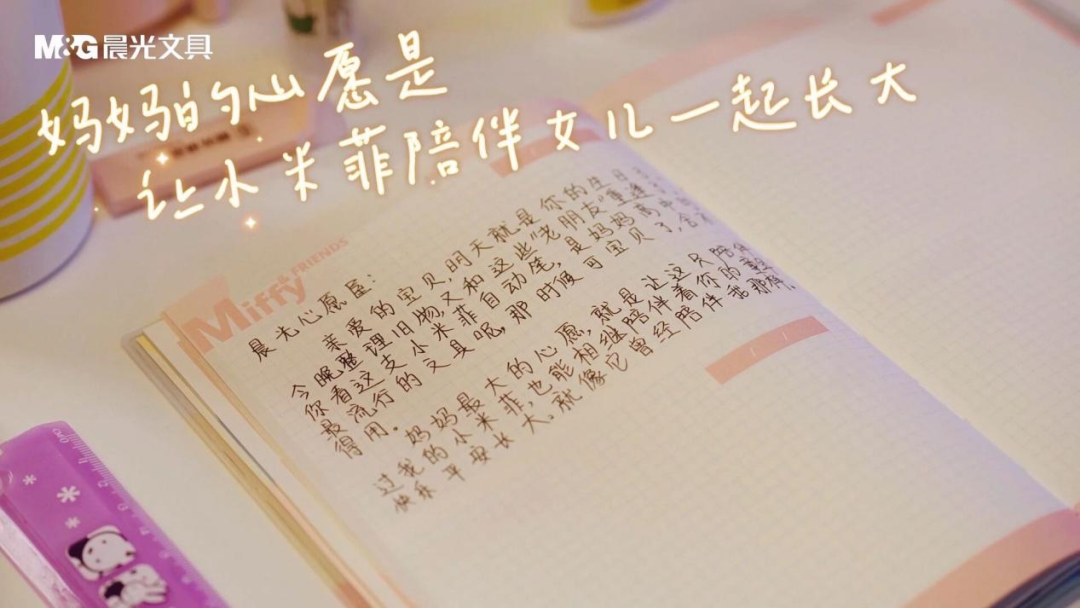 M&G晨光文具
妈妈的心愿是
让小米菲陪伴女儿一起长大
Miffy
FRIENDS
晨光心愿屋：
亲爱的宝贝，明天就是你的生日
今晚整理旧物，又和这些“老朋友”重逢
你看这支小米菲自动笔，是妈妈高中
最流行的文具呢，那时候可宝贝了，舍不
得用。
妈妈最大的心愿，就是让这只陪伴
过我的小米菲，也能相继陪伴着你的
快乐平安长大。就像它曾经陪伴我那样。